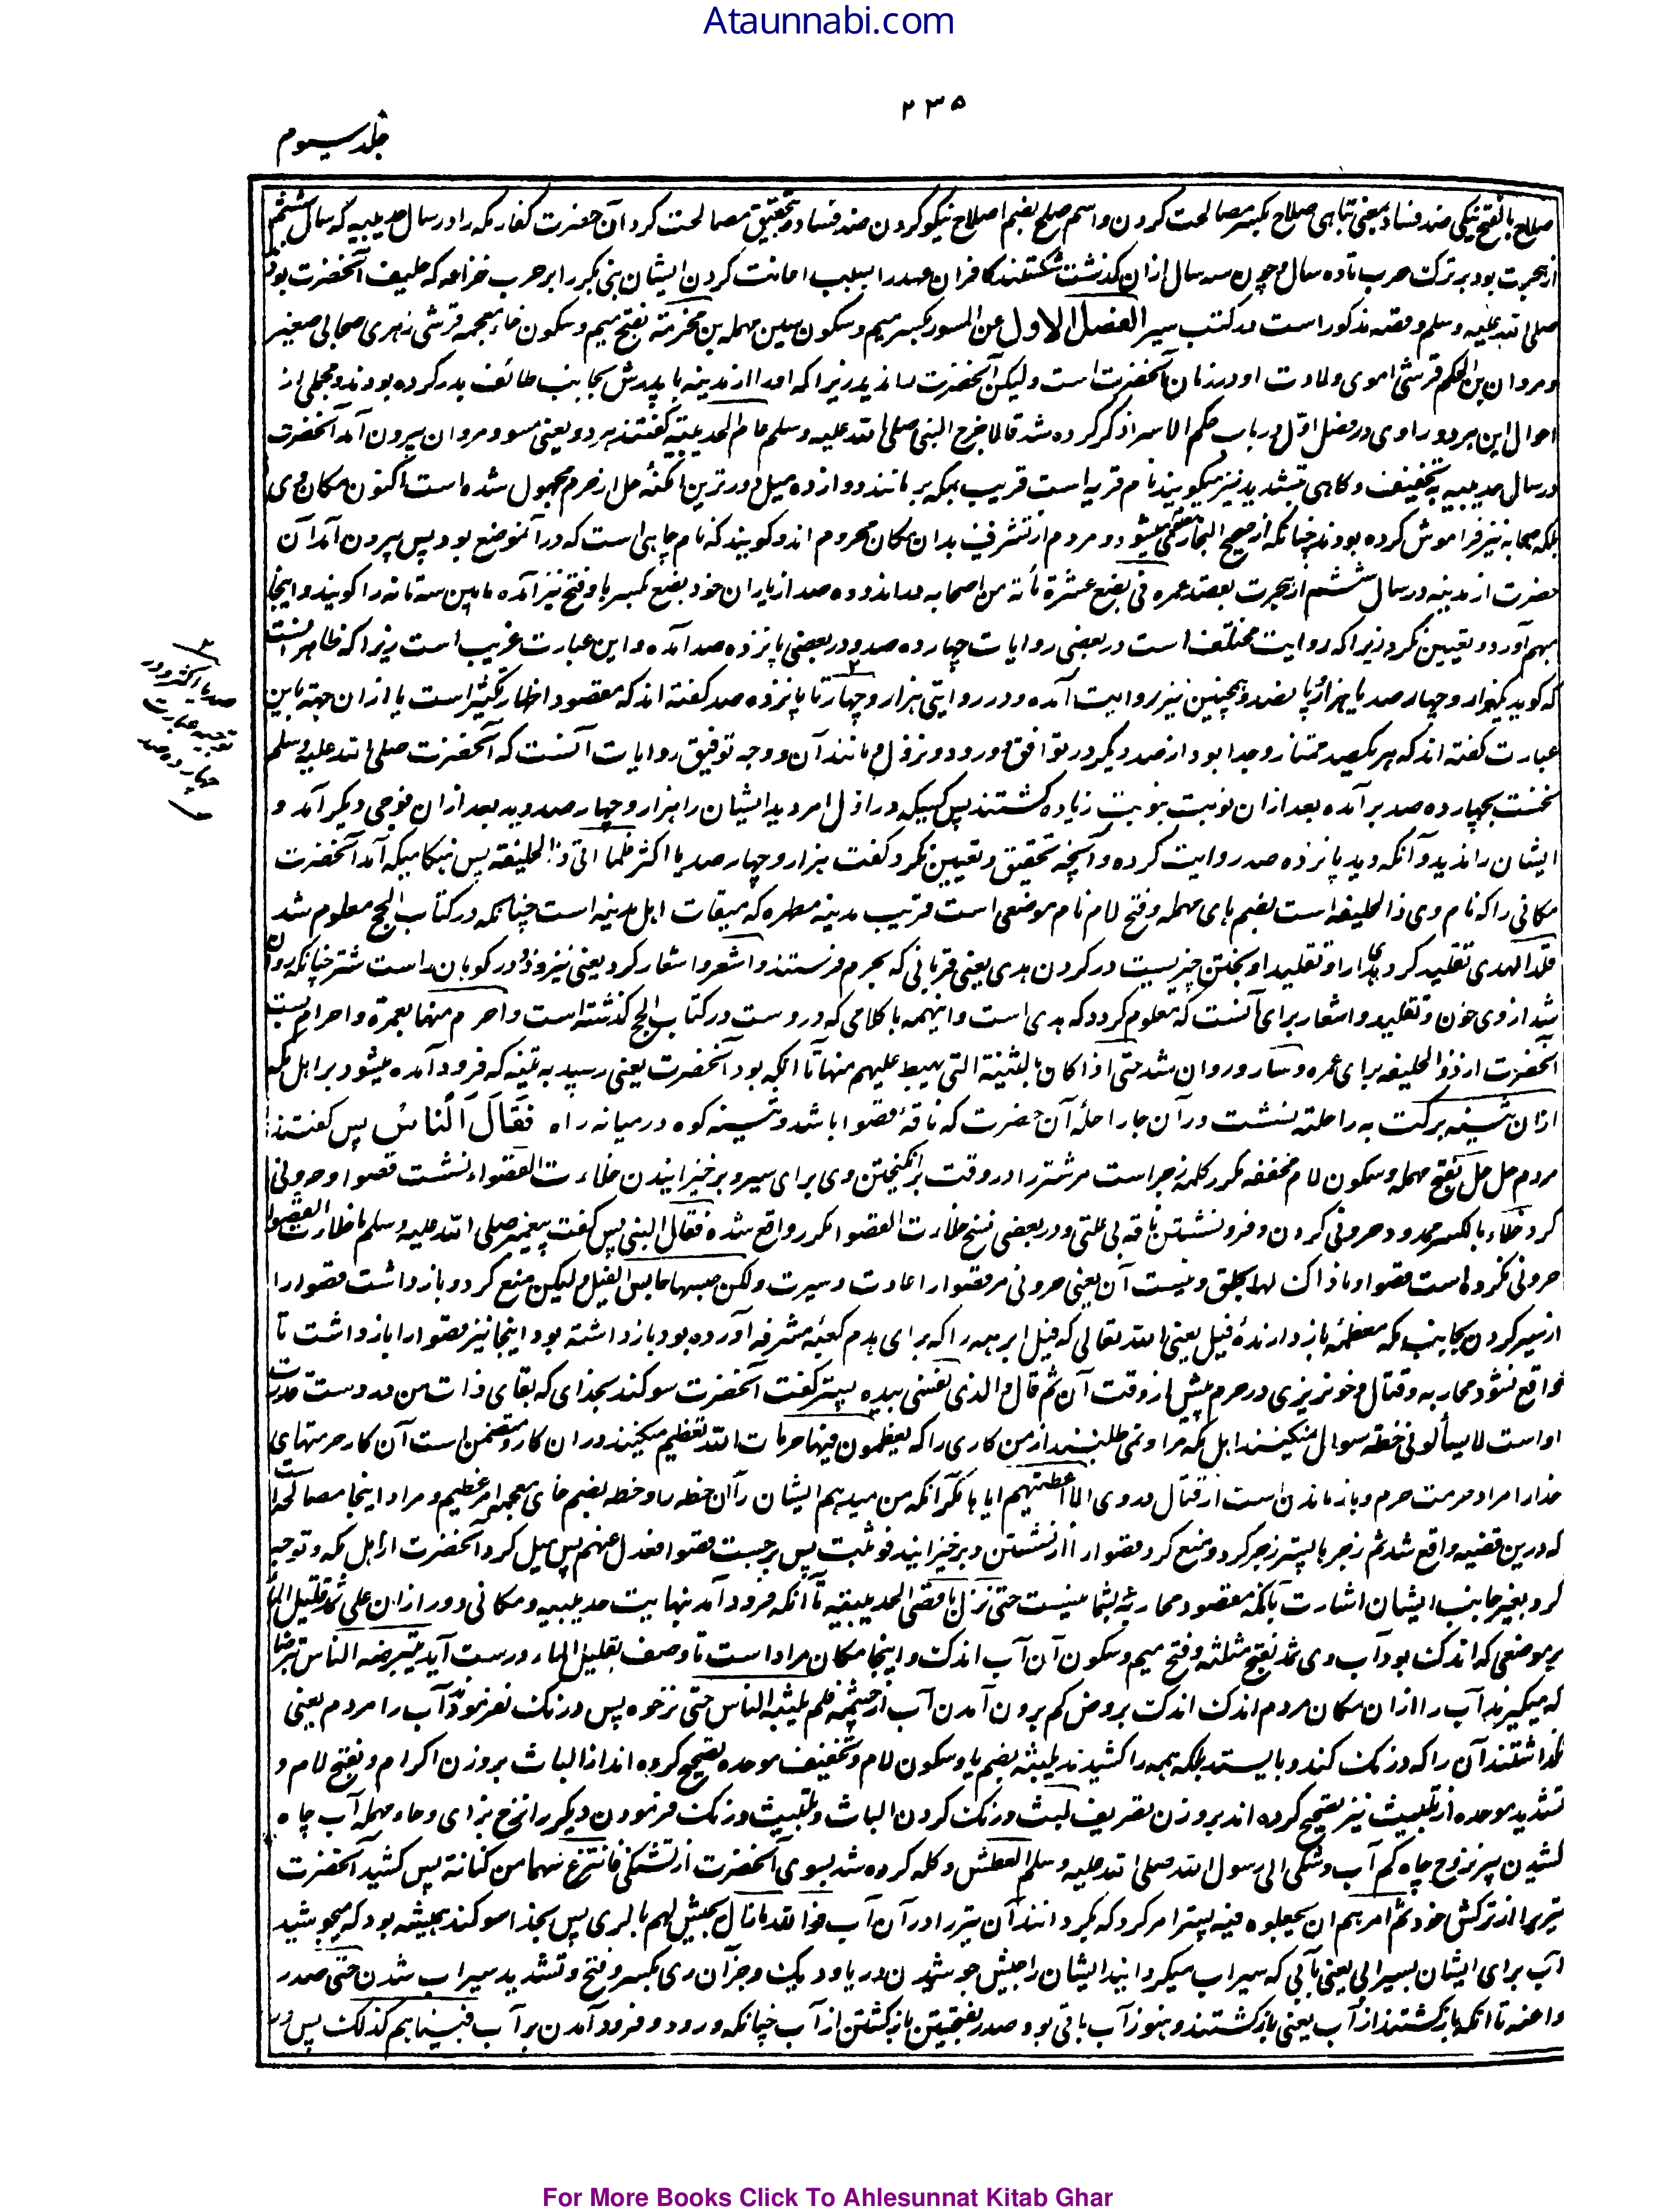 Ataunnabi.com
۲۳۵
جلد سیوم
صلاح بالفتح نیکی ضد فساد بمعنی تباهی صلاح بکسر مصالحت کردن واسم صلح بضم اصلاح نیکو کردن ضد فساد و بتحقیق مصالحت کرد آن حضرت کفار مکه را در سال حدیبیه که سال ششم
از هجرت بود بر ترک حرب تا ده سال و چون سه سال ازان گذشت شکستند کافران عهد را بسبب اعانت کردن ایشان بنی بکر را بر حرب خزاعه که حلیف آنحضرت بودند
صلی الله علیه وسلم و قصه مذکور است در کتب سیر الفصل الاول عن المسور بکسر میم و سکون سین مهمله بن مخرمة بفتح میم و سکون خاء معجمه قرشی زهری صحابی صغیر
و مروان بن الحکم قرشی اموی ولادت او در زمان آنحضرت است ولیکن آنحضرت را ندید زیرا که او را از مدینه با پدرش بجانب طائف بدر کرده بودند و مجملی از
احوال این هر دو راوی در فصل اول در باب حکم الاسراء ذکر کرده شد قالا خرج النبی صلی الله علیه وسلم عام الحدیبیة گفتند هر دو یعنی مسور و مروان بیرون آمد آنحضرت
در سال حدیبیه بتخفیف و گاهی بتشدید نیز میگویند نام قریه است قریب بمکه بر مانند دوازده میل دورترین امکنه حل از حرم مجهول شده است اکنون مکان وی
بلکه صحابه نیز فراموش کرده بودند چنانکه از صحیح البخاری مفهوم میشود و مردم از تشرف بدان مکان محروم اند و گویند که نام چاهی است که در آنموضع بود پس بیرون آمد آن
حضرت از مدینه در سال ششم از هجرت بقصد عمره فی بضع عشرة مأئة من اصحابه در اند و ده صد از یاران خود بضع بکسر با و فتح نیز آمده مابین سه تا نه را گویند و اینجا
مبهم آورد و تعیین نکرد زیرا که روایت مختلف است در بعضی روایات چهارده صد و در بعضی پانزده صد آمده و این عبارت غریب است زیرا که ظاهر آنست
که گوید یکهزار و چهار صد یا هزار و پانصد و همچنین نیز روایت آمده و در روایتی هزار و چهار تا پانزده صد گفته اند که مقصود اظهار تکثیر است یا ازان جهة باین
عبارت گفته اند که هر یکصد ممتاز و جدا بود از صد دیگر در توافق و ورود و نزول و مانند آن و وجه توفیق روایات آنست که آنحضرت صلی الله علیه وسلم
نخست بچهارده صد برآمده بعد ازان نوبت بنوبت زیاده گشتند پس کسیکه در اول امر دید ایشان را هزار و چهار صد دید بعد ازان فوجی دیگر آمد و
ایشان را ندید و آنکه دید پانزده صد روایت کرده و آنچه تحقیق و تعیین نکرد گفت هزار و چهار صد یا اکثر فلما اتی ذا الحلیفة پس هنگامیکه آمد آنحضرت
مکانی را که نام وی ذا الحلیفه است بضم حای مهمله و فتح لام نام موضعی است قریب مدینه مطهره که میقات اهل مدینه است چنانکه در کتاب الحج معلوم شد
قلد الهدی تقلید کرد هدی را و تقلید آویختن چیزیست در گردن هدی یعنی قربانی که بحرم فرستند واشعر واشعار کرد یعنی نیزه زد در کوهان راست شتر چنانکه روان
شد از وی خون و تقلید و اشعار برای آنست که معلوم گردد که هدی است و اینهمه با کلامی که دروست در کتاب الحج گذشته است واحرم منها بعمرة و احرام بست
آنحضرت از ذو الحلیفه برای عمره وسار و روان شد حتی اذا کان بالثنیة التی یهبط علیهم منها تا آنکه بود آنحضرت یعنی رسید به ثنیه که فرود آمده میشود بر اهل مکه
ازان ثنیه برکت به راحلته نشست در آن جا راحلهٔ آن حضرت که ناقهٔ قصوا باشد و ثنیه کوه در میانه راه فَقَالَ النَّاسُ پس گفتند
مردم حل حل بفتح مهمله و سکون لام مخففه مکرر کلمه زجر است مر شتر را در وقت برانگیختن وی برای سیر و برخیزانیدن خلاءت القصواء نشست قصوا و حرونی
کرد خلاء بالکسر ممدود حرونی کردن و فرونشستن ناقه بی علتی و در بعضی نسخ خلاءت القصوا مکرر واقع شده فقال النبی پس گفت پیغمبر صلی الله علیه وسلم ما خلاءت القصوا
حرونی نکرده است قصوا وما ذاک لها بخلق و نیست آن یعنی حرونی مر قصوا را عادت و سیرت ولکن حبسها حابس الفیل ولیکن منع کرد و بازداشت قصوا را
از سیر کردن بجانب مکه معظمه بازدارندهٔ فیل یعنی الله تعالی که فیل ابرهه را که برای هدم کعبهٔ مشرفه آورده بود بازداشته بود اینجا نیز قصوا را بازداشت تا
واقع نشود محاربه و قتال و خونریزی در حرم پیش از وقت آن ثم قال والذی نفسی بیده پستر گفت آنحضرت سوگند بخدای که بقای ذات من در دست قدرت
اوست لا یسألونی خطة سوال نمیکنند اهل مکه مرا و نمی طلبند از من کاری را که یعظمون فیها حرمات الله تعظیم میکنند در ان کار و متضمن است آن کار حرمتهای
خدا را مراد حرمت حرم و باز ماندن است از قتال در وی الا اعطیتهم ایاها مگر آنکه من میدهم ایشان را آن خطه را و خطه بضم خای معجمه امر عظیم و مراد اینجا مصالحه است
که درین قضیه واقع شد ثم زجرها پستر زجر کرد و منع کرد قصوا را از نشستن و برخیزانید فوثبت پس برجست قصوا فعدل عنهم پس میل کرد آنحضرت از اهل مکه و توجه
کرد بغیر جانب ایشان اشارت بآنکه مقصود محاربه بشما نیست حتی نزل باقصی الحدیبیة تا آنکه فرود آمد بنهایت حدیبیه و مکانی دور ازان علی ثمد قلیل الماء
بر موضعی که اندک بود آب وی ثمد بفتح مثلثه و فتح میم و سکون آن آب اندک و اینجا مکان مراد است تا وصف بقلیل الماء درست آید یتبرضه الناس تبرضا
که میگیرند آب را ازان مکان مردم اندک اندک بروض کم برون آمدن آب از چشمه فلم یلبثه الناس حتی نزحوه پس درنگ نفرمودند آب را مردم یعنی
نگذاشتند آن را که درنگ کند و بایستد بلکه همه را کشیدند یلبثه بضم یا و سکون لام و تخفیف موحده تصحیح کرده اند از الباث بروزن اکرام و بفتح لام و
تشدید موحده از تلبیث نیز تصحیح کرده اند بروزن تصریف لبث درنگ کردن الباث و تلبیث درنگ فرمودن دیگر را نزح بزای و حاء مهمله آب چاه
کشیدن بیر نزوح چاه کم آب وشکی الی رسول الله صلی الله علیه وسلم العطش و گله کرده شد بسوی آنحضرت از تشنگی فانتزع سهما من کنانته پس کشید آنحضرت
تیری را از ترکش خود ثم امرهم ان یجعلوه فیه پستر امر کرد که بگردانند آن تیر را در آن آب فوالله ما زال یجیش لهم بالری پس بخدا سوگند همیشه بود که میجوشید
آب برای ایشان بسیرابی یعنی بآبی که سیراب میگردانید ایشان را جیش جوشیدن دریا و دیک و جز آن ری بکسر و فتح و تشدید سیراب شدن حتی صدر
وا عنه تا آنکه بازگشتند از آب یعنی بازگشتند و هنوز آب باقی بود صدر بفتحتین بازگشتن از آب چنانکه ورود و فرود آمدن بر آب فبینا هم کذلک پس در
عبارت
چهارده صد
For More Books Click To Ahlesunnat Kitab Ghar